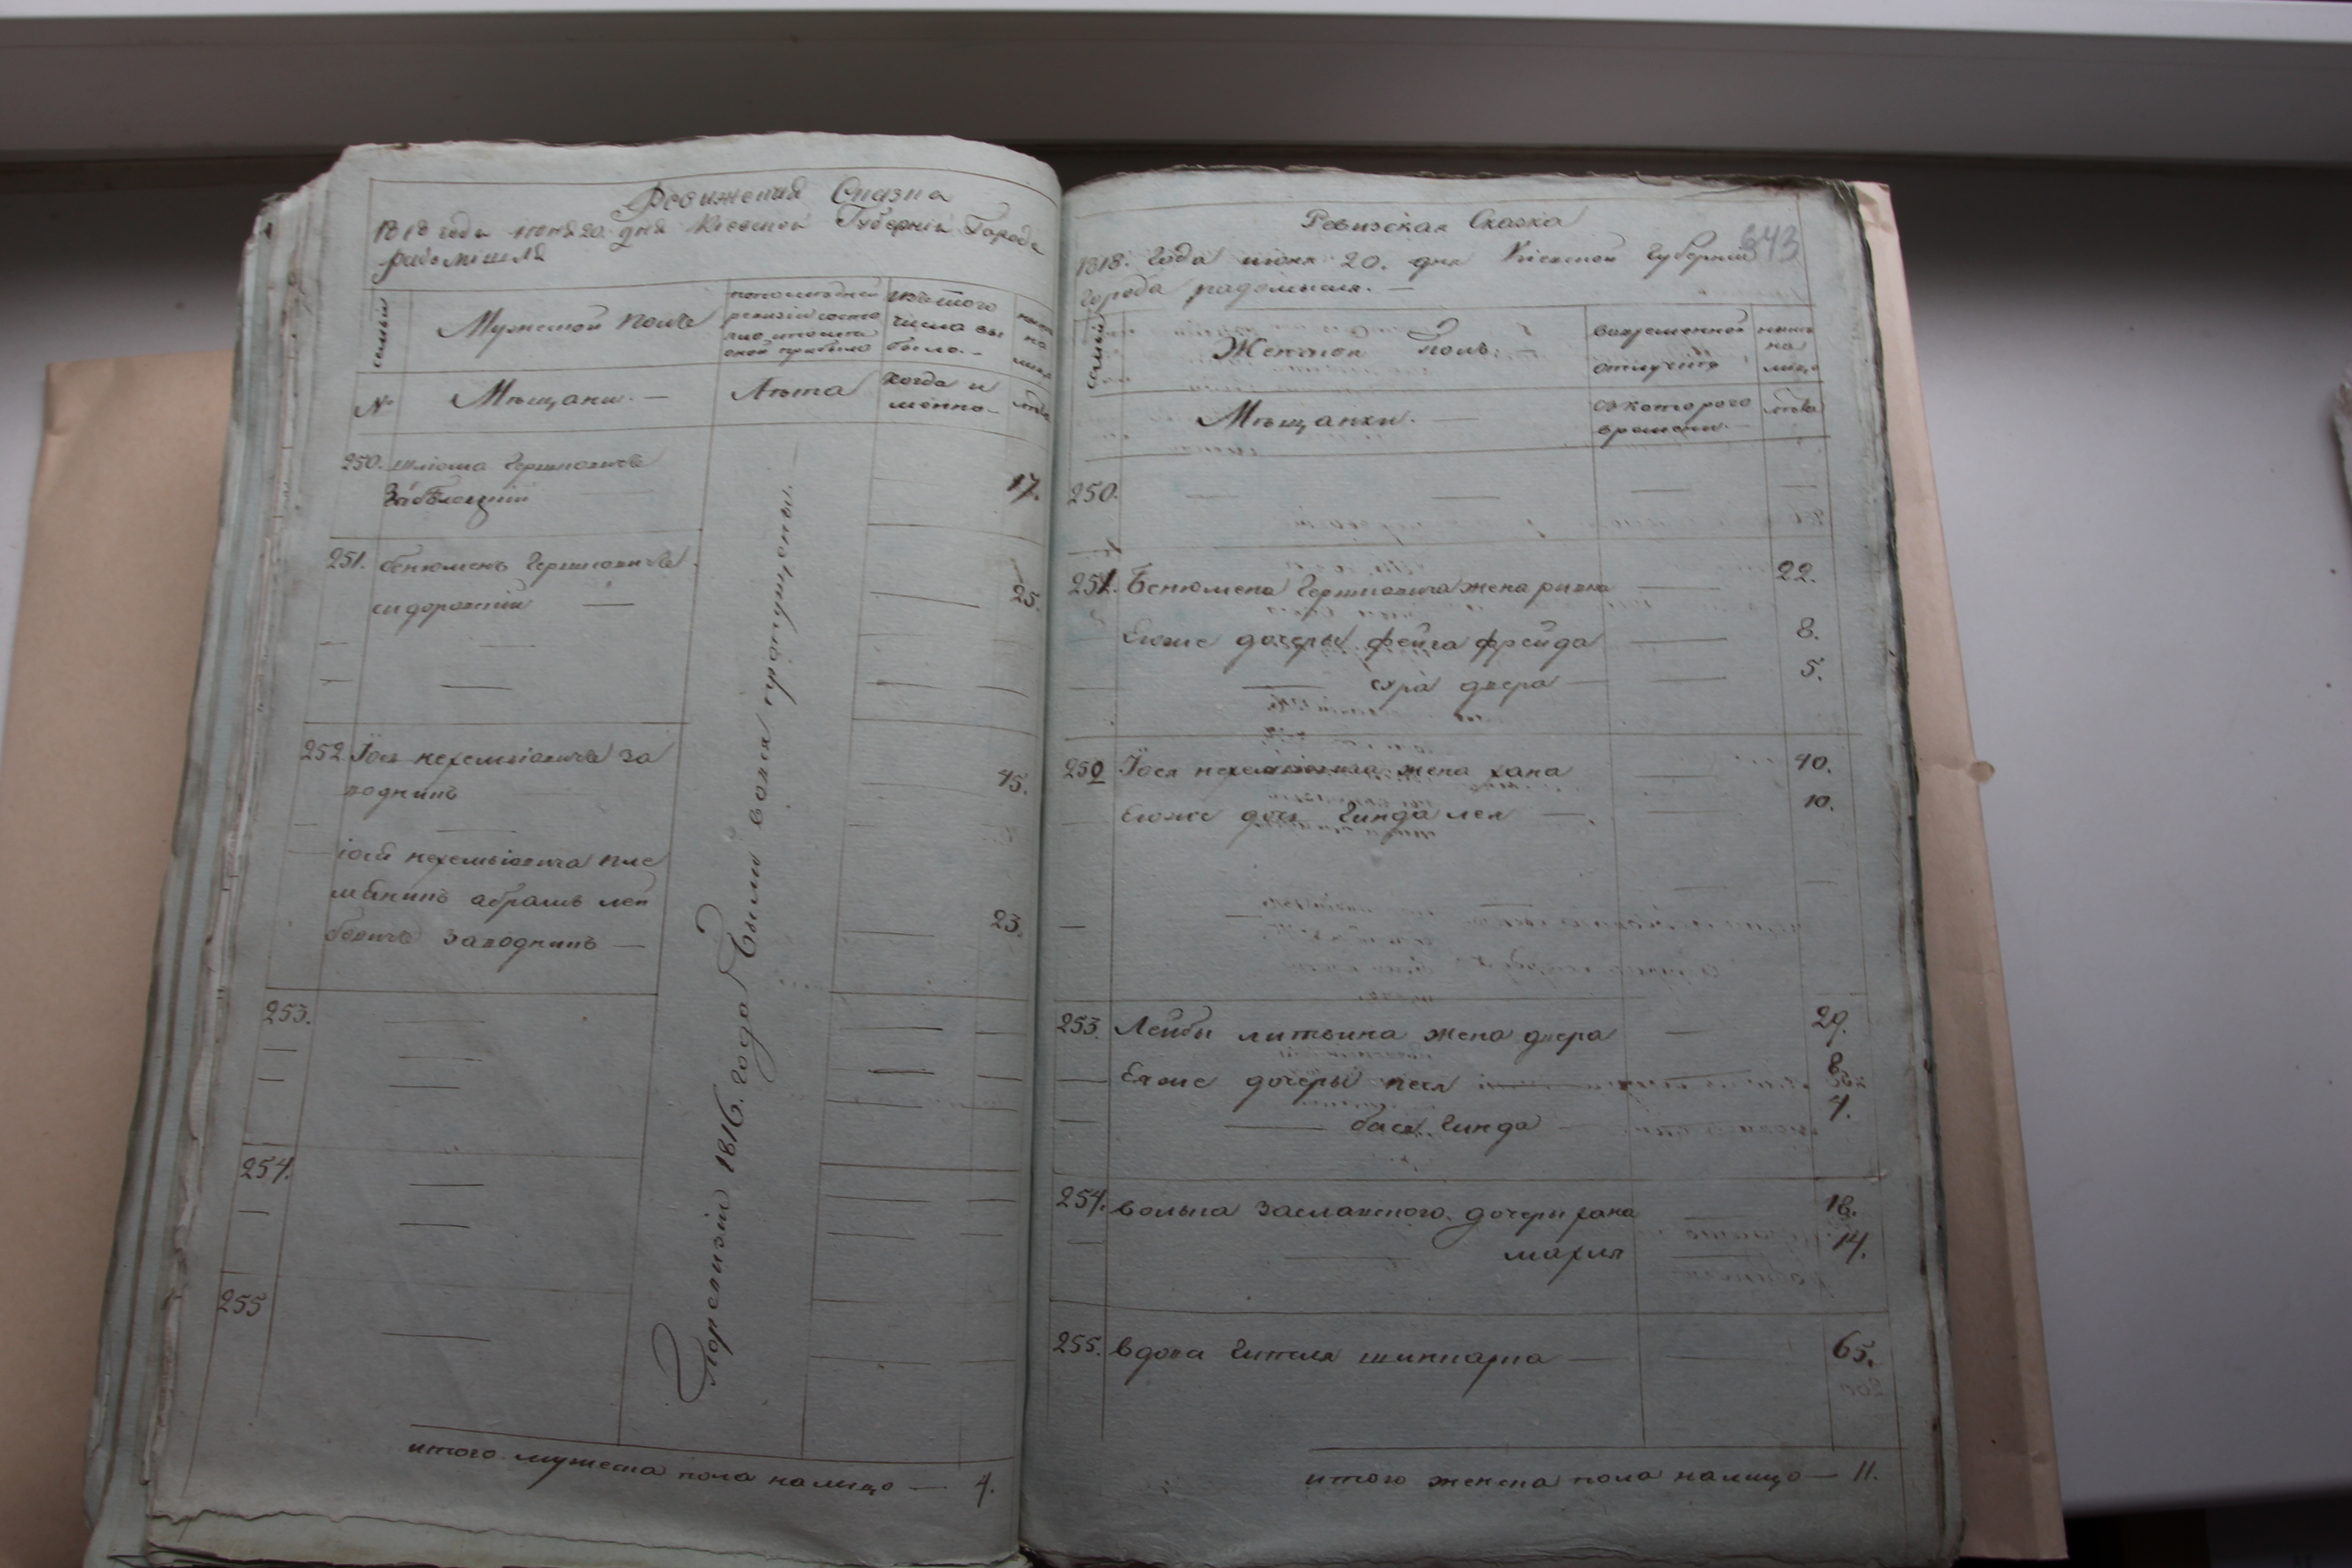 Ревижская Сказка
1818 года июня 20 дня Киевской Губернии Города
радомишля
семьи
Мужеской полъ
по последней
ревизии состо
яло и после
оной прибыло
изъ того
числа вы
было.
ныне
на
лицо
№
Мѣщани. —
Лѣта
когда и
менно —
лѣта
250. шлiома Гершковичъ
Заблоцкiй
17.
251. бенюменъ Гершковичъ
сидоровскiй —
25.
252. Iось нехемiовичъ за
воднинъ
45.
iося нехемiовича пле
мяникъ абрамъ лей
бовичъ заводнинъ —
23.
253.
254.
255
По ревизiи 1816. года были вовся пропущены.
итого мужеска пола налицо — 4.
Ревизская Сказка
643
1818. Года июня 20. дня Киевской Губернiи
города радомысля. —
семьи
Женской полъ
во временной
отлучке
ныне
на
лицо
Мѣщанки. —
съ которого
времени
лѣта
250. — — — —
251. Бенюмена Гершковича жена ривка — 22.
Егоже дочеры фейга фрейда — 8.
— сура двера — 5.
250 Iося нехемiовича жена хана 40.
Егоже дочь Гинда лея — 10.
253. Лейбы литвина жена двера — 29.
Егоже дочеры песя 8
— бася Гинда — 4.
254. волька заславского дочери хана 18.
— махля 14.
255. вдова Гителя шинкарка — 65.
итого женска пола налицо — 11.